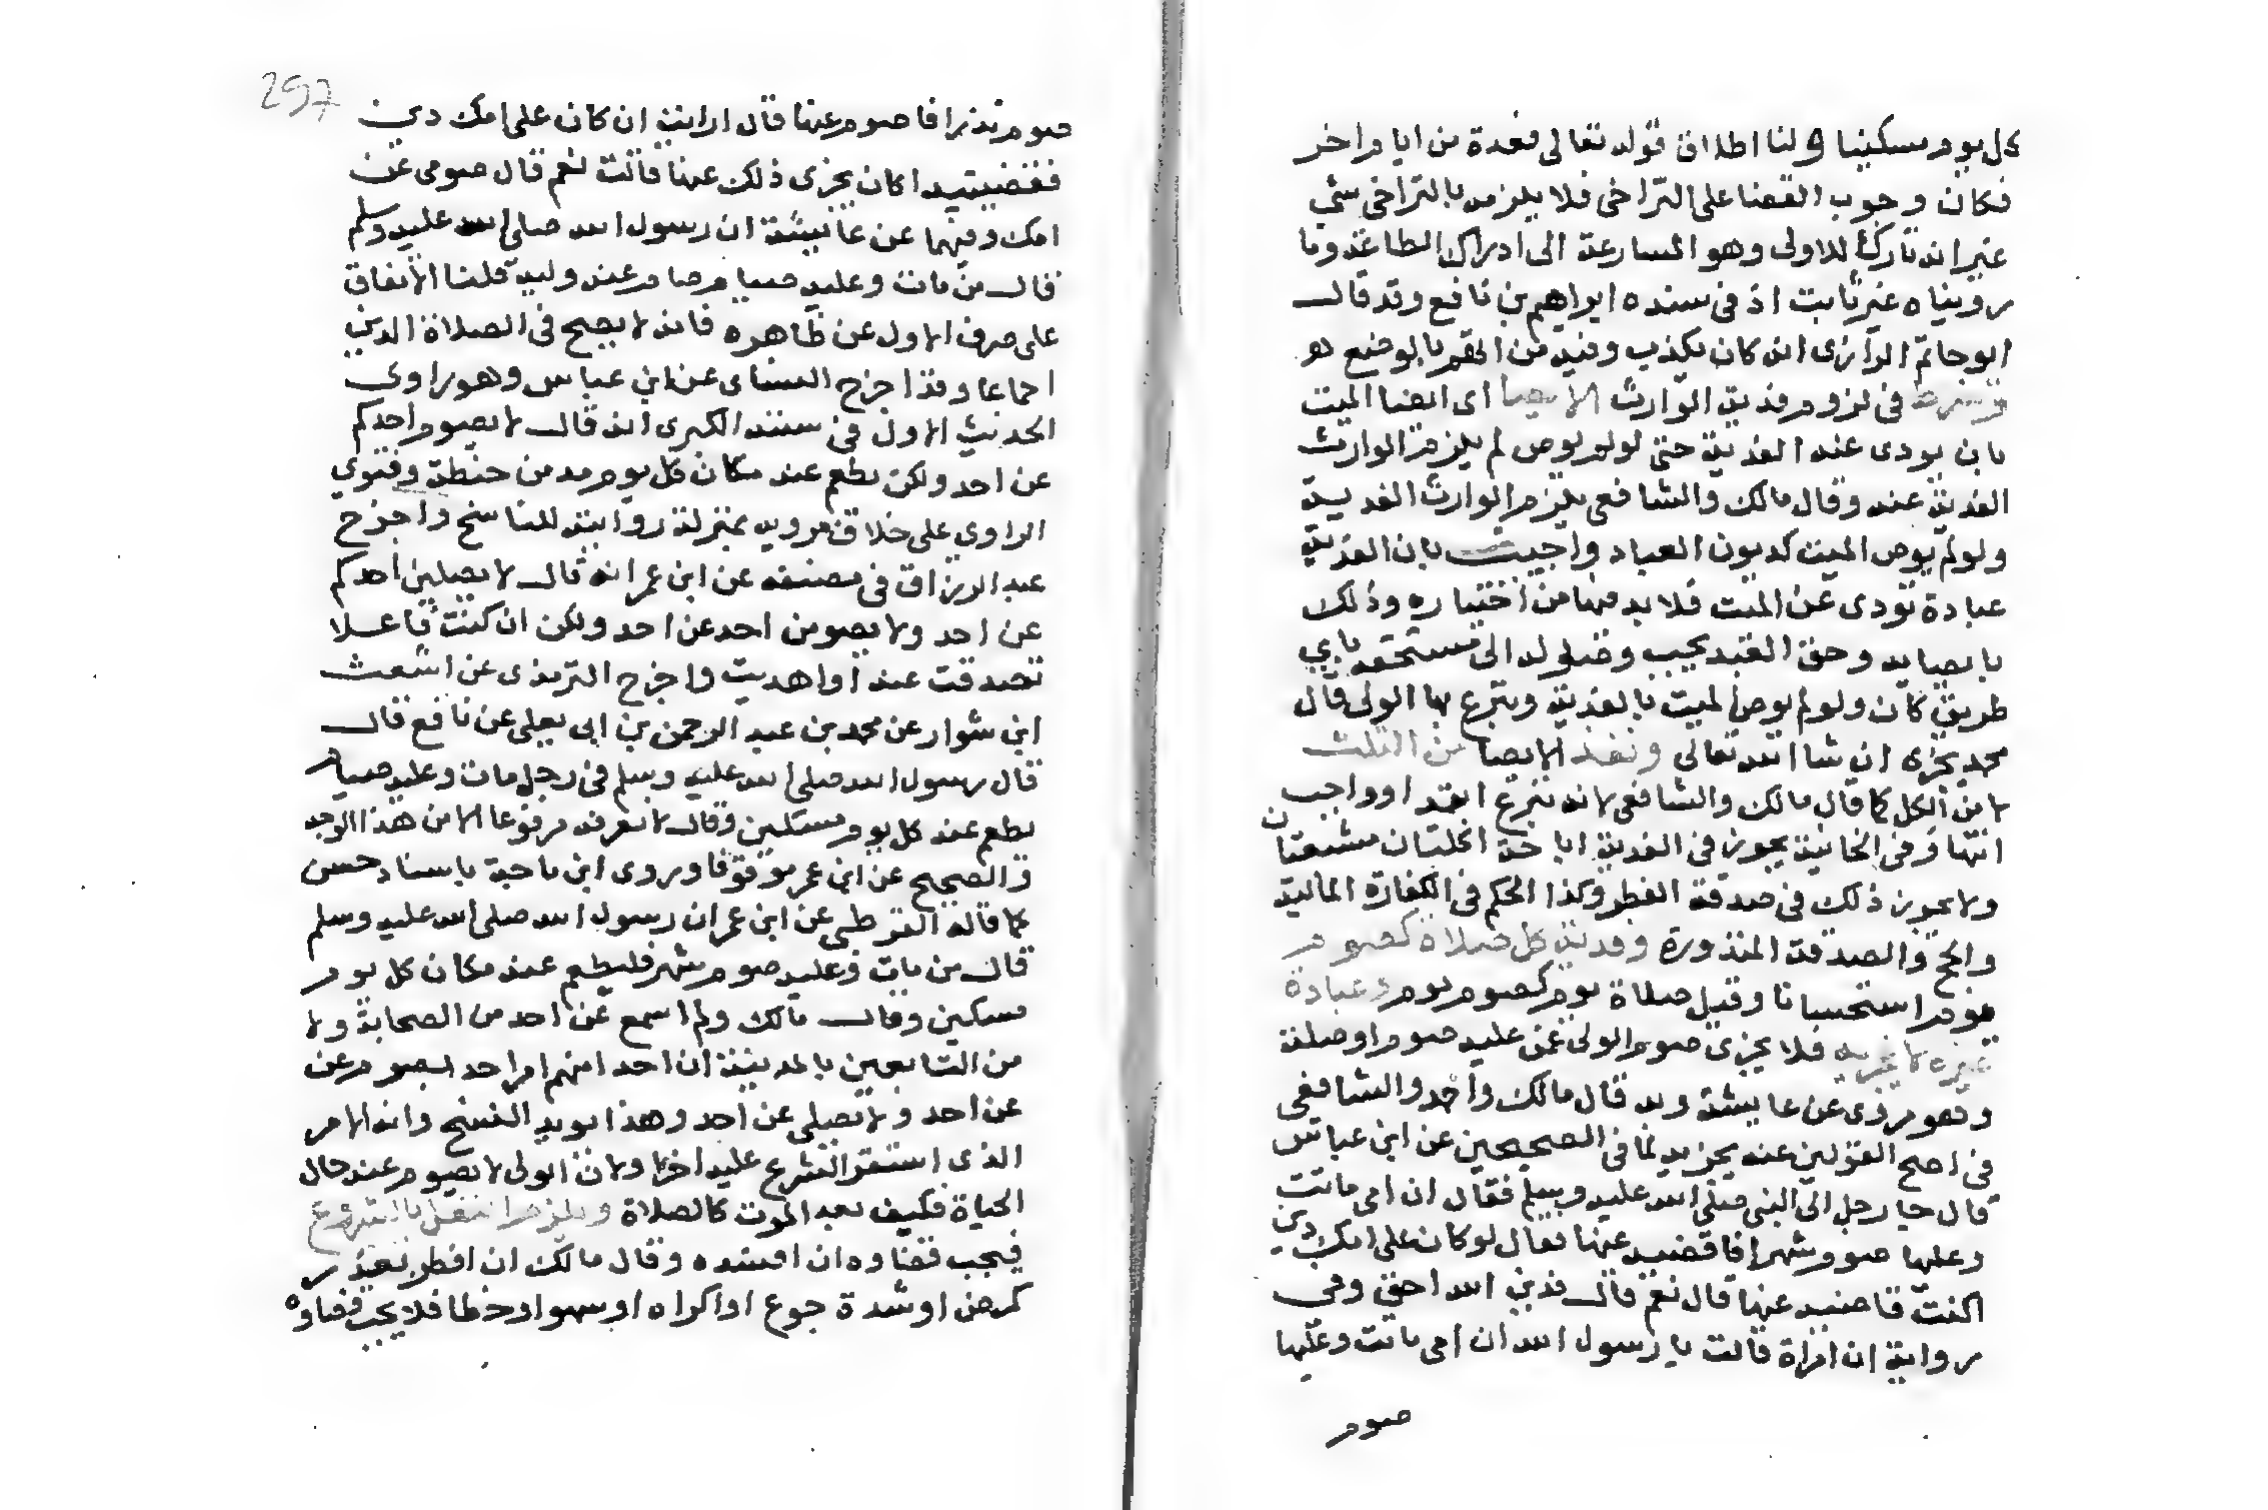 كل يوم مسكينا ولنا اطلاق قوله تعالى فعدة من ايام اخر
فكان وجوب القضا على التراخى فلا يلزمه بالتراخى شي
غير انه تارك للاولى وهو المسارعة الى ادراك الطاعة وما
رويناه غير ثابت اذ فى سنده ابراهيم بن نافع وقد قال
ابو حاتم الرازى انه كان يكذب وفيه من اتهم بالوضع هو
وشرط فى لزوم فدية الوارث الايصا اى ايصا الميت
بان يودى عنه الفدية حتى لو لم يوص لم يلزم الوارث
الفدية عنه وقال مالك والشافعى يلزم الوارث الفدية
ولو لم يوص الميت كديون العباد واجيب بان الفدية
عبادة تودى عن الميت فلا بد فيها من اختياره وذلك
بايصايه وحق العبد يجب وصوله الى مستحقه باي
طريق كان ولو لم يوص الميت بالفدية وتبرع بها الولى قال
محمد يجزه ان شا الله تعالى ونفذ الايصا من الثلث
لا من الكل كما قال مالك والشافعى لانه تبرع ابتدا وواجب
انتها وفى الخانية يجوز فى الفدية اباحة اكلتان مشبعتان
ولا يجوز ذلك فى صدقة الفطر وكذا الحكم فى الكفارة المالية
والحج والصدقة المنذورة وفدية كل صلاة كصوم
يوم استحسانا وقيل صلاة يوم كصوم يوم وعبادة
غيره لا تجزيه فلا يجزى صوم الولى عمن عليه صوم او صلاة
وهو مروى عن عايشة وبه قال مالك واحمد والشافعى
فى اصح القولين عنه يجزيه لما فى الصحيحين عن ابن عباس
قال جا رجل الى النبى صلى الله عليه وسلم فقال ان امى ماتت
وعليها صوم شهر افاقضيه عنها فقال لو كان على امك دين
اكنت قاضيه عنها قال نعم قال فدين الله احق وفى
رواية ان امراة قالت يا رسول الله ان امى ماتت وعليها
صوم
297
صوم نذر افاصوم عنها قال ارايت ان كان على امك دين
فقضيتيه اكان يجزى ذلك عنها قالت نعم قال صومى عن
امك وفيهما عن عايشة ان رسول الله صلى الله عليه وسلم
قال من مات وعليه صيام صام عنه وليه قلنا الاتفاق
على صرف الاول عن ظاهره فانه لا يصح فى الصلاة الدين
اجماعا وقد اخرج النساى عن ابن عباس وهو راوى
الحديث الاول فى سننه الكبرى انه قال لا يصوم احدكم
عن احد ولكن يطعم عنه مكان كل يوم مد من حنطة وفتوي
الراوي على خلاف مرويه بمنزلة روايته للناسخ واخرج
عبد الرزاق فى مصنفه عن ابن عمر انه قال لا يصلين احدكم
عن احد ولا يصومن احد عن احد ولكن ان كنت فاعلا
تصدقت عنه او اهديت واخرج الترمذى عن اشعث
ابن شوار عن محمد بن عبد الرحمن بن ابى يعلى عن نافع قال
قال رسول الله صلى الله عليه وسلم فى رجل مات وعليه صيام
يطعم عنه كل يوم مسكين وقال لا نعرفه مرفوعا الا من هذا الوجه
والصحيح عن ابن عمر موقوفا وروى ابن ماجة باسناد حسن
كما قاله القرطبى عن ابن عمر ان رسول الله صلى الله عليه وسلم
قال من مات وعليه صوم شهر فليطعم عنه مكان كل يوم
مسكين وقال مالك ولم اسمع عن احد من الصحابة ولا
من التابعين بالمدينة ان احدا منهم امر احد ايصوم عن
عن احد ولا يصلى عن احد وهذا يويد النسخ وانه الامر
الذى استقر الشرع عليه اخرا ولان الولى لا يصوم عنه حال
الحياة فكيف بعد الموت كالصلاة ويلزم النفل بالشروع
فيجب قضاوه ان افسده وقال مالك ان افطر بعذر
كمرض او شدة جوع او اكراه او سهو او خطا فلا يجب قضاوه